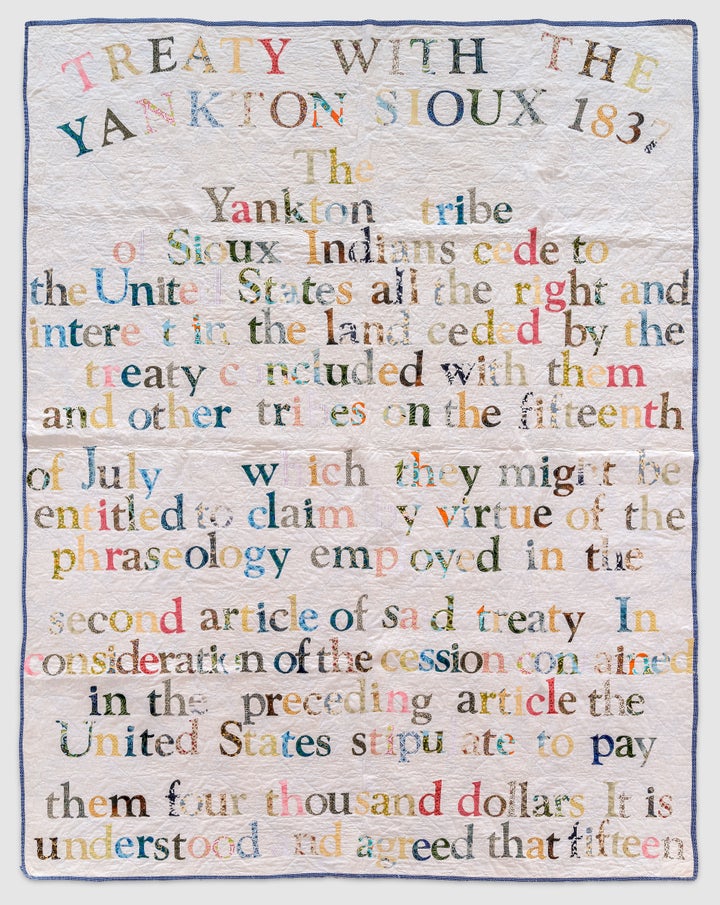 TREATY WITH THE
YANKTON SIOUX 1837
The
Yankton tribe
of Sioux Indians cede to
the United States all the right and
interest in the land ceded by the
treaty concluded with them
and other tribes on the fifteenth
of July which they might be
entitled to claim by virtue of the
phraseology employed in the
second article of said treaty In
consideration of the cession contained
in the preceding article the
United States stipulate to pay
them four thousand dollars It is
understood and agreed that fifteen